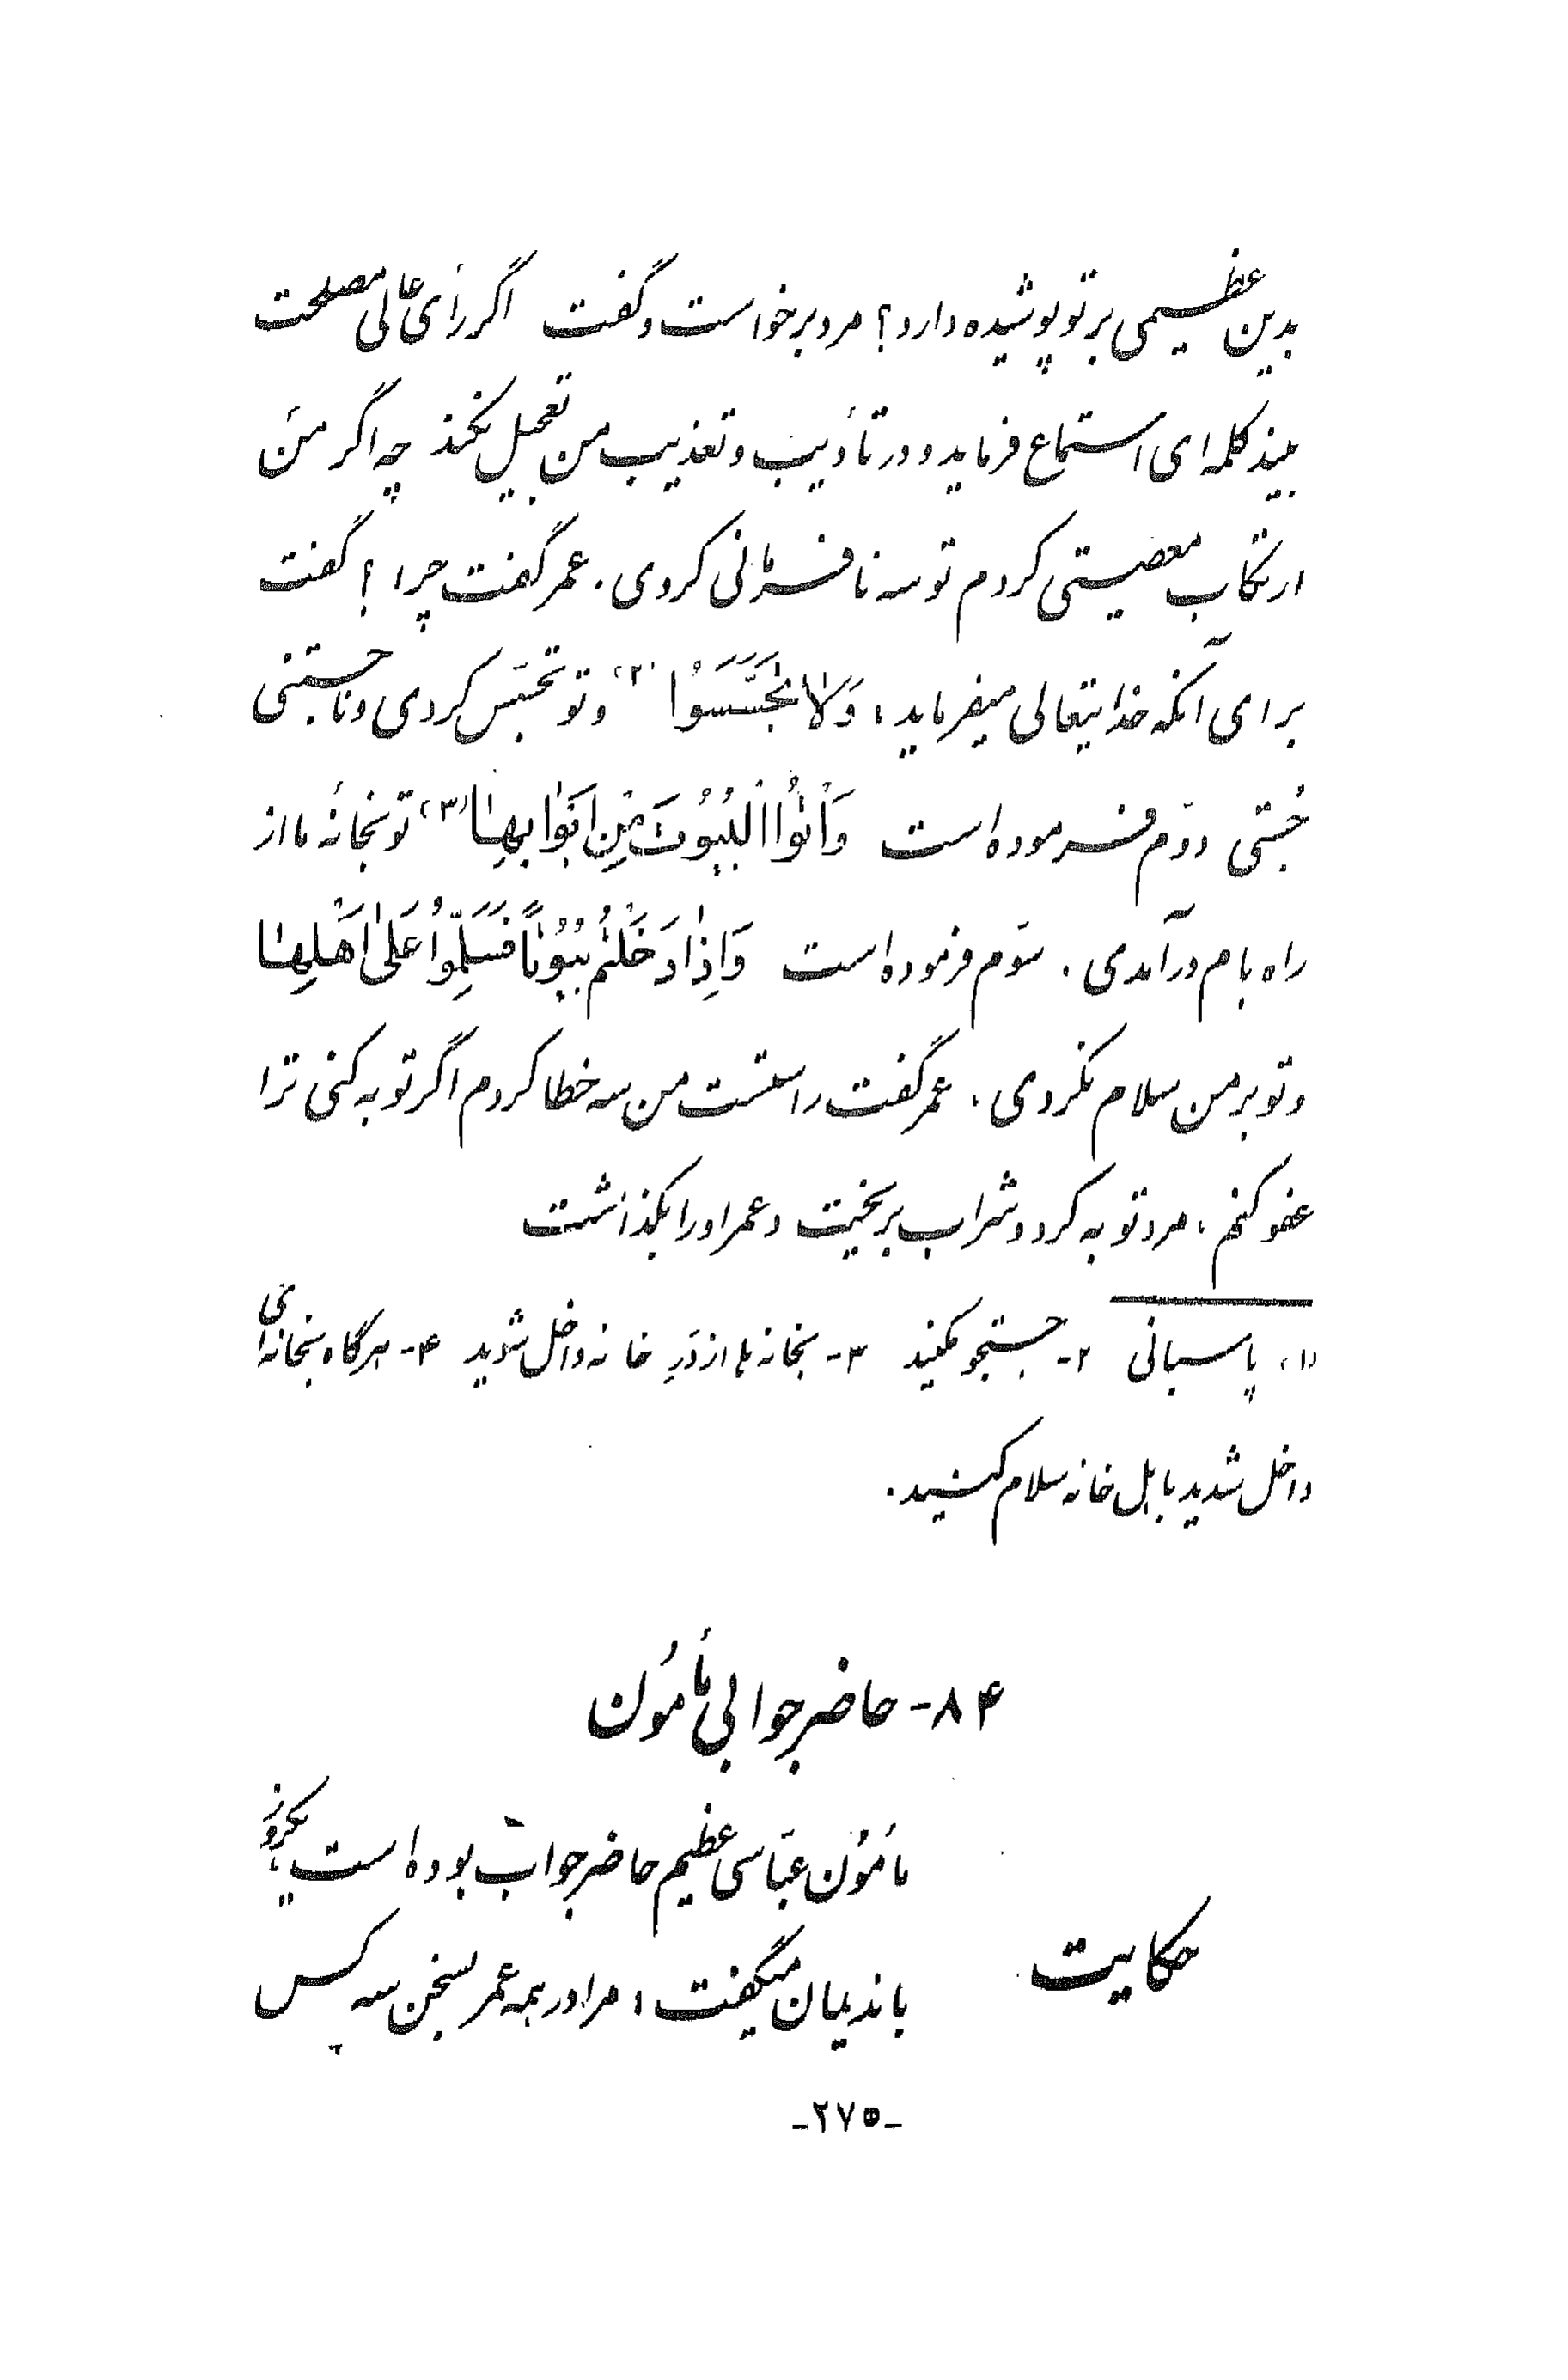 بدین عظیمی بر تو پوشیده دارد؟ مرد برخاست و گفت اگر رأی عالی مصلحت
بیند کلمه ای استماع فرماید و در تأدیب و تعذیب من تعجیل نکند چه اگر من
ارتکاب معصیتی کردم تو سه نافرمانی کردی. عمر گفت چرا؟ گفت
برای آنکه خدایتعالی میفرماید، وَلا تَجَسَّسَوُا (۲) و تو تجسّس کردی و ناجستنی
جُستی دوّم فرموده است وَأتوُا الْبُیُوُتَ مِنْ اَبَوٰابِهٰا (۳) تو بخانۀ ما از
راه بام درآمدی. سّوم فرموده است وَاِذٰا دَخَلْتُم بُیُوُتاً فَسَلِّمُوا عَلیٰ اَهْلِهٰا
و تو بر من سلام نکردی. عمر گفت راستست من سه خطا کردم اگر توبه کنی ترا
عفو کنم، مرد توبه کرد و شراب بریخت و عمر او را بگذاشت
(۱) پاسبانی ۲- جستجو مکنید ۳- بخانه ها از دَرِ خانه داخل شوید ۴- هرگاه بخانه‌ای
داخل شدید باهل خانه سلام کنید.
۸۴- حاضر جوابی مأمُون
مأمُون عبّاسی عظیم حاضر جواب بوده است، یکروز
با ندیمان میگفت، مرا در همه عمر سخن سه کس
حکایت
-۲۷۵-